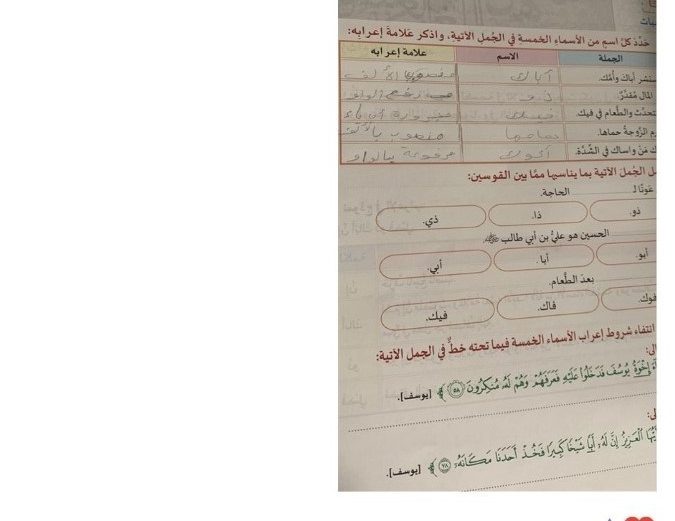 حدّد كلّ اسمٍ من الأسماء الخمسةِ في الجُمل الآتية، واذكر عَلامةَ إعرابِه:
الجملة الاسم علامة إعرابه
أباكَ وأمَّك. أباك
المال مُقدَّرٌ. ذو
والطَّعام في فيك.
الزَّوجةُ حماها. حماها منصوب بالألف
مَنْ واساك في الشِّدَّة. أخوك مرفوعة بالواو
الجُمَلَ الآتية بما يناسبها ممّا بين القوسين:
عونًا لـ الحاجة.
ذو. ذا. ذي.
الحسين هو عليُّ بن أبي طالب
أبو. أبا. أبي.
بعدَ الطَّعام.
فوك. فاك. فيك.
انتفاء شروط إعراب الأسماء الخمسة فيما تحته خطٌّ في الجمل الآتية:
إِخْوَةُ يُوسُفَ فَدَخَلُوا عَلَيْهِ فَعَرَفَهُمْ وَهُمْ لَهُ مُنكِرُونَ ٥٨ [يوسف].
الْعَزِيزُ إِنَّ لَهُ أَبًا شَيْخًا كَبِيرًا فَخُذْ أَحَدَنَا مَكَانَهُ ٧٨ [يوسف].